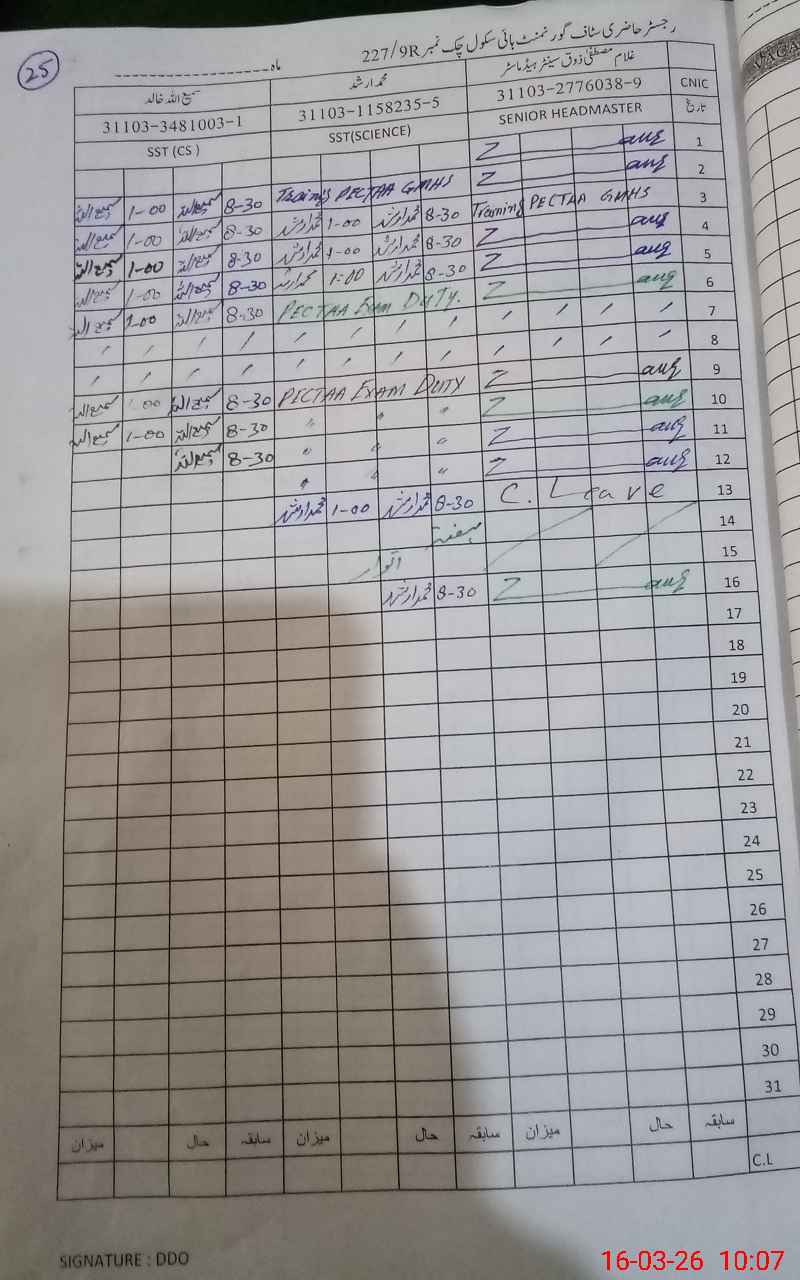 رجسٹر حاضری سٹاف گورنمنٹ ہائی سکول چک نمبر 227/9R ماہ
25
غلام مصطفیٰ ذوق سینئر ہیڈ ماسٹر محمد ارشد سمیع اللہ خالد
CNIC 31103-2776038-9 31103-1158235-5 31103-3481003-1
تاریخ SENIOR HEADMASTER SST(SCIENCE) SST (CS )
1
2 Training PECTAA GMHS 8-30 سمیع اللہ 1-00 سمیع اللہ
3 Training PECTAA GMHS 8-30 محمد ارشد 1-00 محمد ارشد 8-30 سمیع اللہ 1-00 سمیع اللہ
4 8-30 محمد ارشد 1-00 محمد ارشد 8-30 سمیع اللہ 1-00 سمیع اللہ
5 8-30 محمد ارشد 1:00 محمد ارشد 8-30 سمیع اللہ 1-00 سمیع اللہ
6 PECTAA Exam DUTY. 8-30 سمیع اللہ 1-00 سمیع اللہ
7 〃 〃 〃 〃 〃 〃 〃 〃 〃 〃 〃 〃
8 〃 〃 〃 〃 〃 〃 〃 〃 〃 〃 〃 〃
9 PECTAA EXAM DUTY 8-30 سمیع اللہ 1-00 سمیع اللہ
10 〃 〃 〃 8-30 سمیع اللہ 1-00 سمیع اللہ
11 〃 〃 〃 8-30 سمیع اللہ
12 〃 〃 〃
13 C. Leave 8-30 محمد ارشد 1-00 محمد ارشد
14 ہفتہ
15 اتوار
16 8-30 محمد ارشد
17
18
19
20
21
22
23
24
25
26
27
28
29
30
31
سابقہ حال میزان سابقہ حال میزان سابقہ حال میزان
C.L
SIGNATURE : DDO
16-03-26 10:07